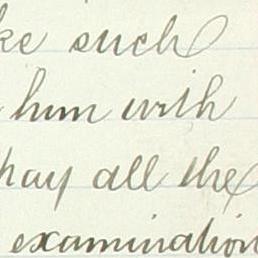 ke such
him with
pay all the
examination